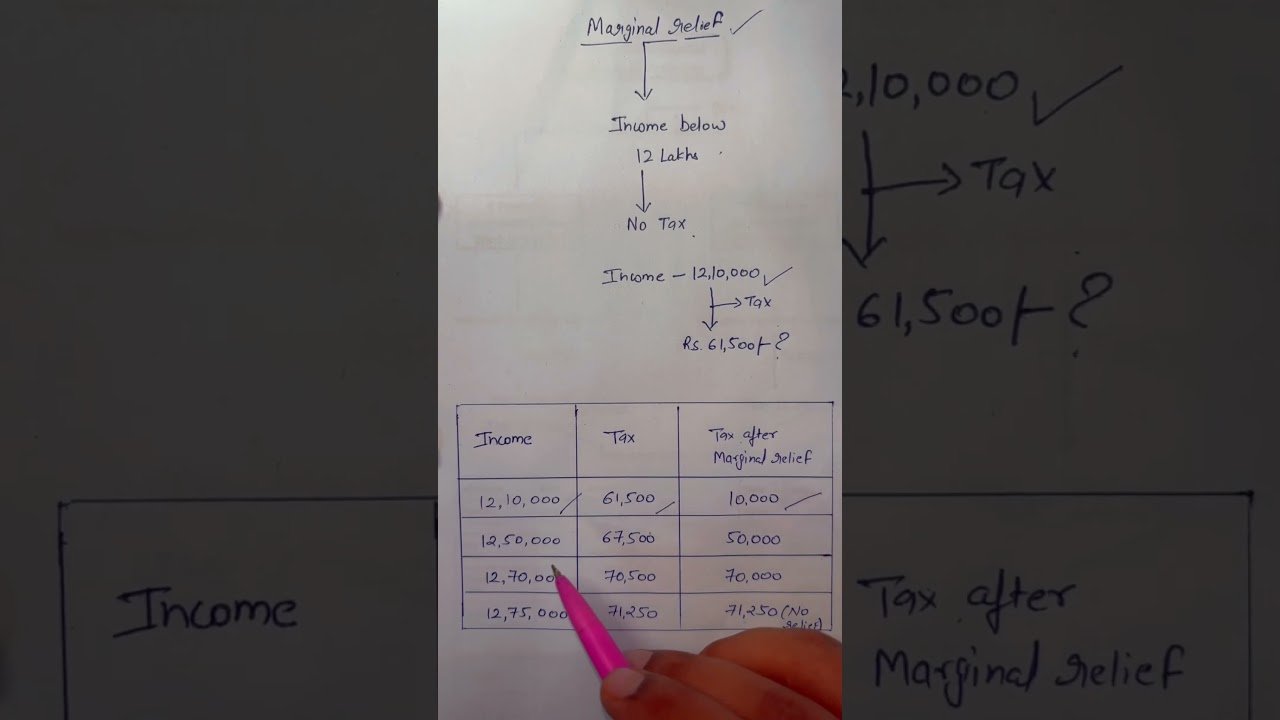 Marginal relief
Income below
12 Lakhs
No Tax
Income - 12,10,000
Tax
Rs. 61,500/- ?
Income Tax Tax after
Marginal relief
12,10,000 61,500 10,000
12,50,000 67,500 50,000
12,70,000 70,500 70,000
12,75,000 71,250 71,250 (No
relief)
2,10,000
Tax
61,500/- ?
Income
Tax after
Marginal relief